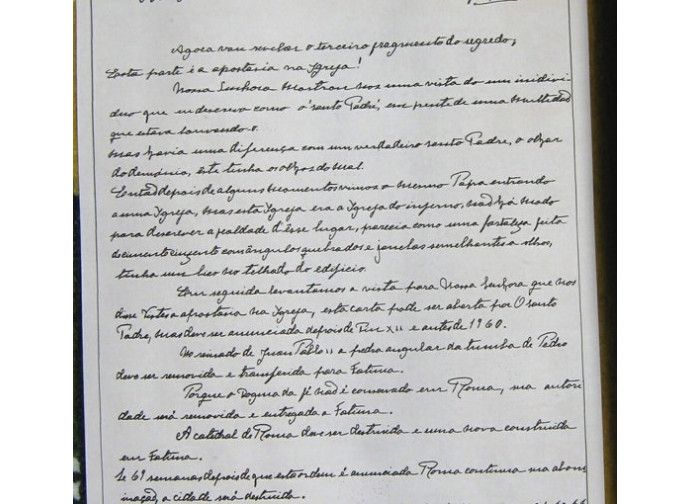 Agora vou revelar o terceiro fragmento do segredo;
Esta parte é a apostasia na Igreja!
Nossa Senhora mostrou nos uma vista do um individi-
duo que eu descrevo como o 'santo Padre', em frente de uma multidão
que estava louvando-o.
Mas havia uma diferença com um verdadeiro santo Padre, o olhar
do demónio, este tinha os olhos do mal.
Então depois de alguns momentos vimos o mesmo Papa entrando
a uma Igreja, mas esta Igreja era a Igreja do inferno, não há modo
para descrever a fealdade d'êsse lugar, parecia como uma fortaleza feita
de cimento cinzento com ângulos quebrados e janelas semelhantes a olhos,
tinha um bico no telhado do edificio.
Em seguida levantamos a vista para Nossa Senhora que nos
disse Vistes a apostasia na Igreja, esta carta pode ser aberta por O santo
Padre, mas deve ser anunciada depois de Pio XII e antes de 1960.
No reinado de Juan Pablo II a pedra angular da tumba de Pedro
deve ser removida e transferida para Fatima.
Porque o dogma da fé não é conservado em Roma, sua autori-
dade será removida e entregada a Fatima.
A catedral de Roma deve ser destruida e uma nova construida
em Fatima.
Se 69 semanas depois de que esta ordem é anunciada Roma continua sua abom-
inação, a cidade será destruida.